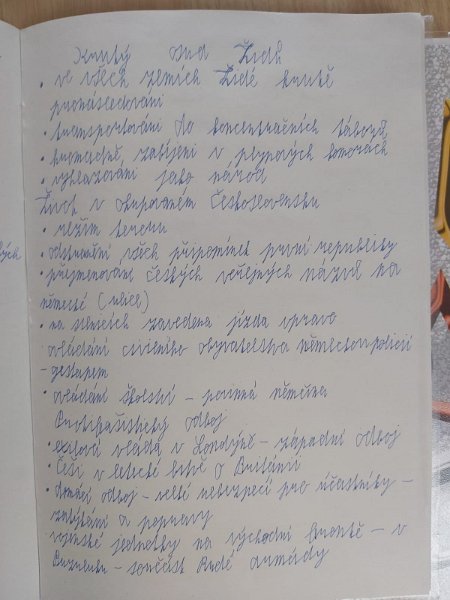 Krutý osud Židů
• ve všech zemích Židé krutě
pronásledováni
• transportováni do koncentračních táborů,
• hromadně zabíjeni v plynových komorách
• vyhlazováni jako národ
Život v okupovaném Československu
• režim teroru
• odstranění všech připomínek první republiky
• přejmenování českých veřejných názvů na
německé (ulice)
• na silnicích zavedena jízda vpravo
ovládání civilního obyvatelstva německou policií
- gestapem
• ovládání školství - povinná němčina
Protifašistický odboj
• exilová vláda v Londýně - západní odboj
• Češi v letecké bitvě o Británii
• domácí odboj - velké nebezpečí pro účastníky -
zatýkání a popravy
• vojenské jednotky na východní frontě - v
Buzuluku - součást Rudé armády